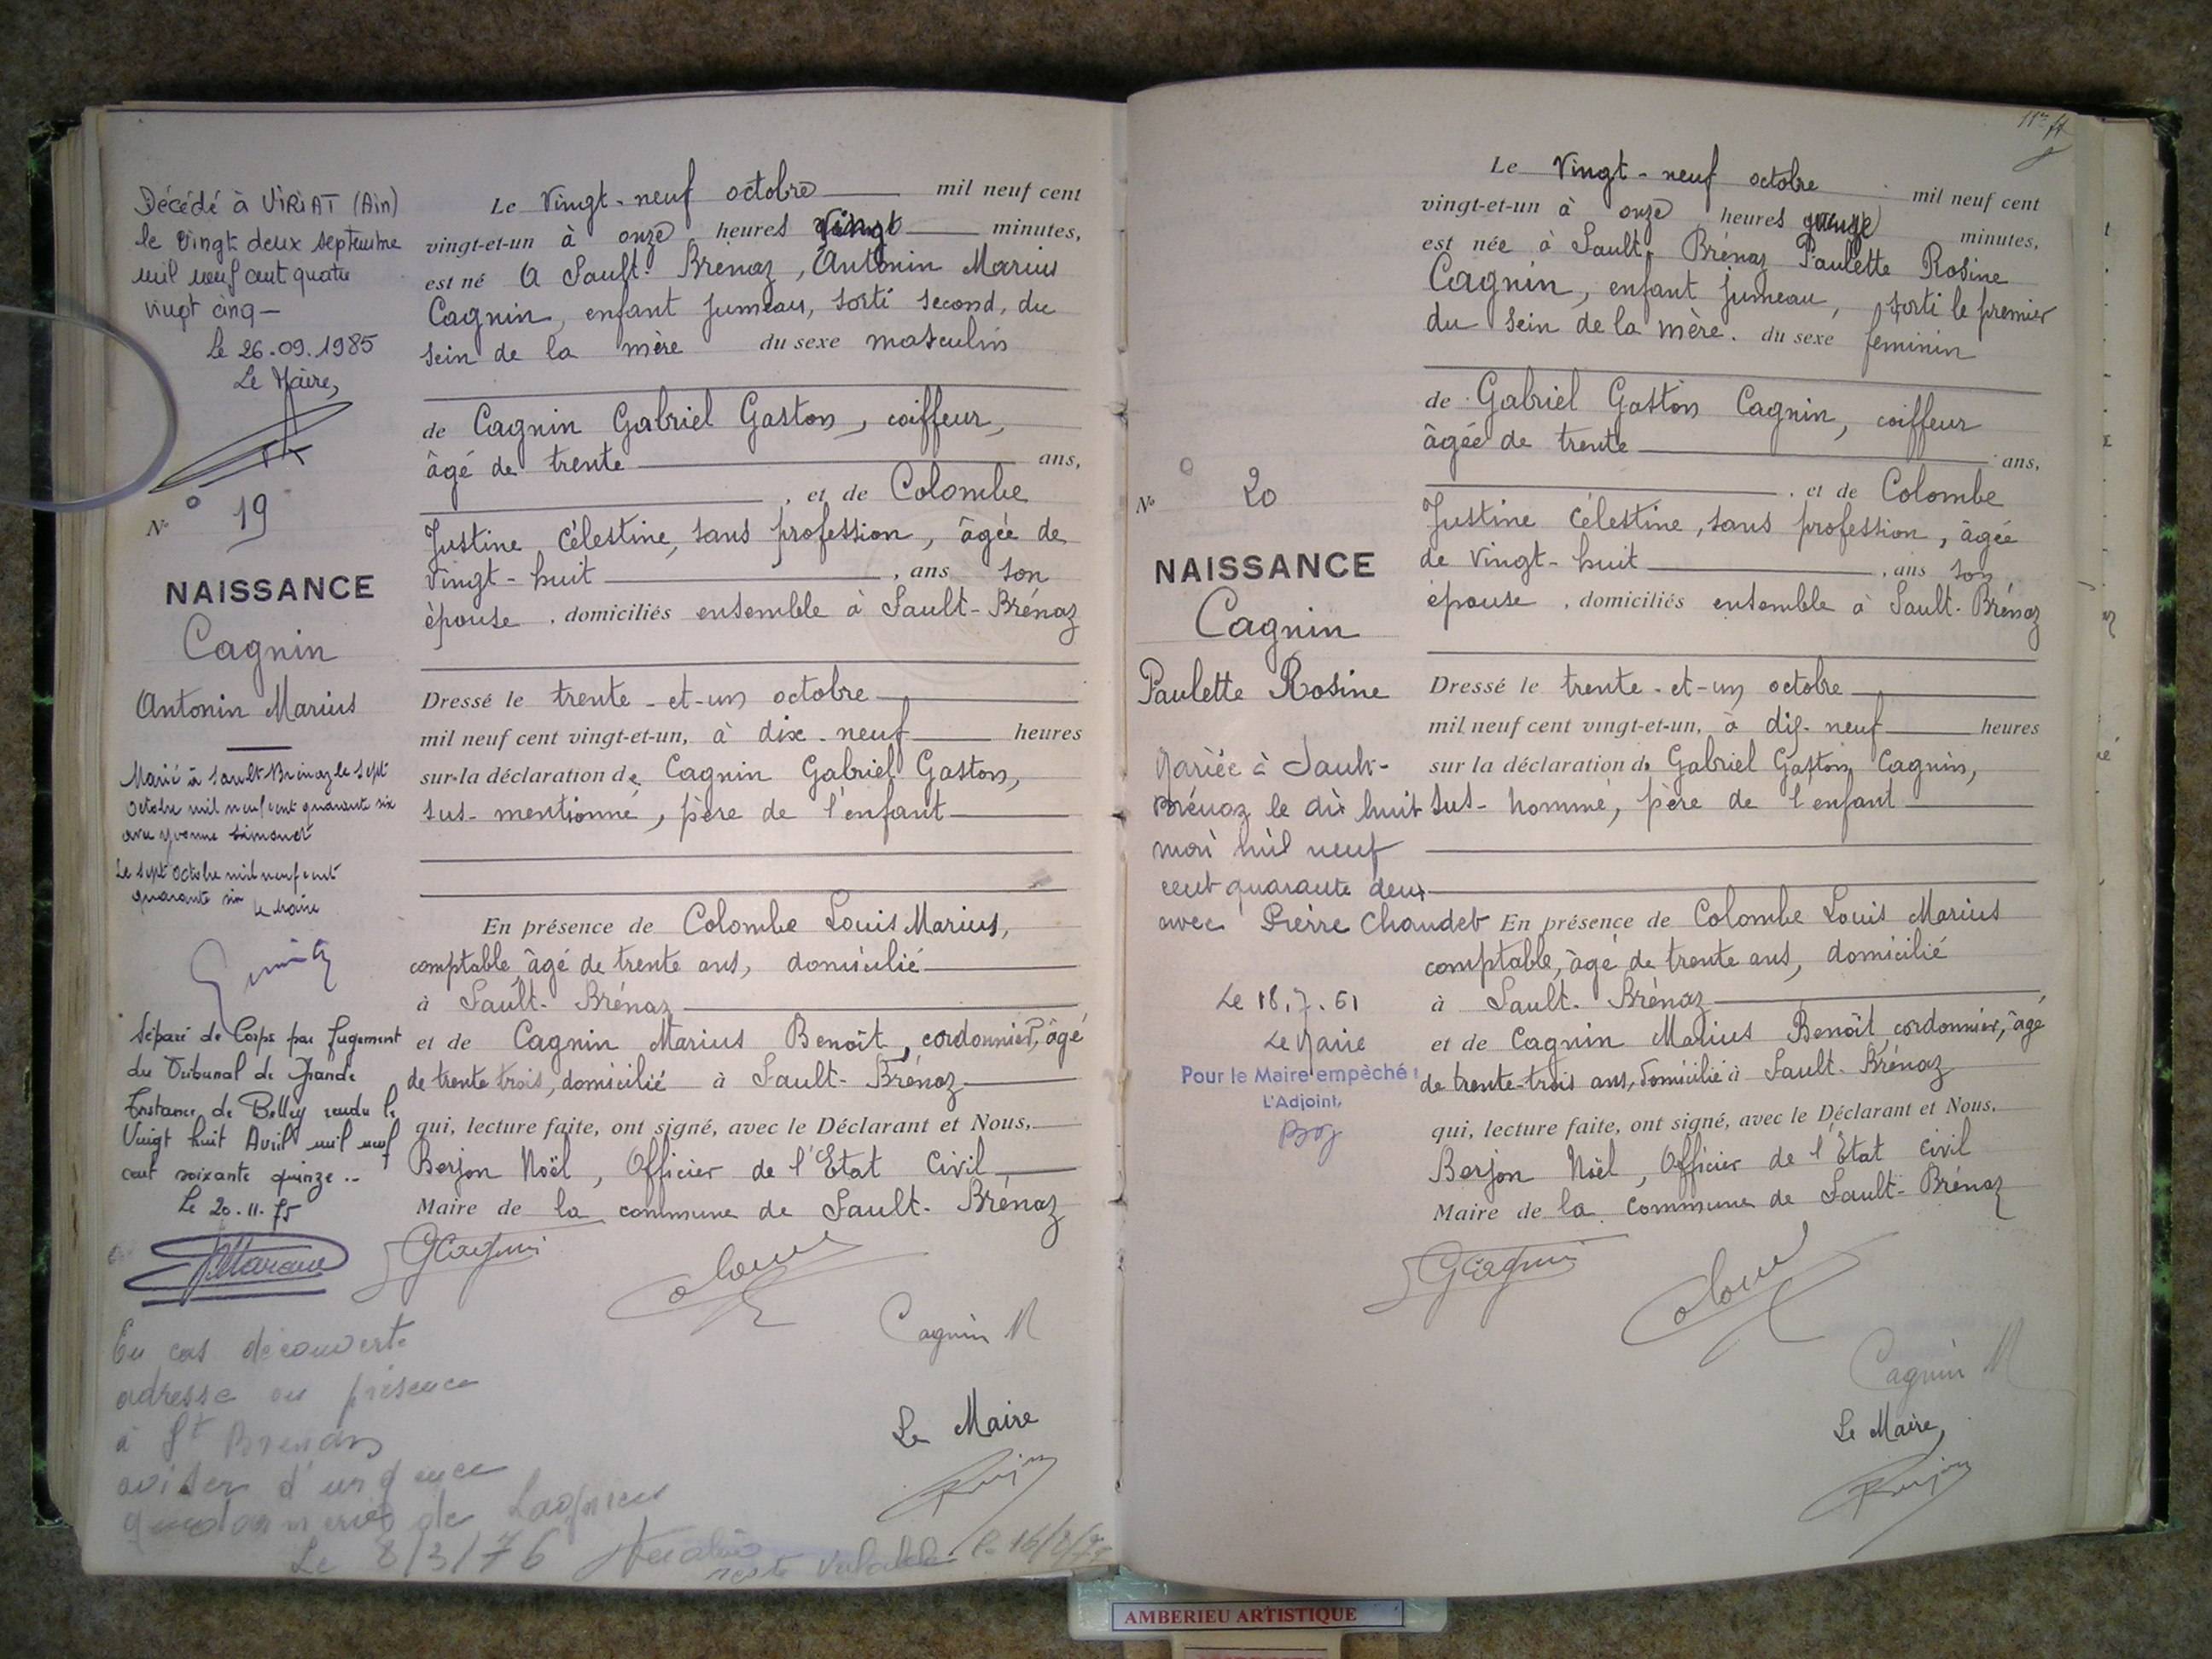 Décédé à VIRIAT (Ain)
le vingt deux septembre
mil neuf cent quatre
vingt cinq —
Le 26.09.1985
Le Maire,
N° 19
NAISSANCE
Cagnin
Antonin Marius
Marié à Sault-Brénaz le sept
octobre mil neuf cent quarante six
avec Yvonne Simonet
Le sept octobre mil neuf cent
quarante six
le maire
Séparé de Corps par Jugement
du Tribunal de Grande
Instance de Belley rendu le
Vingt huit Avril mil neuf
cent soixante quinze ..
Le 20.11.75
En cas découverte
adresse ou présence
à St Brénaz
aviser d'urgence
gendarmerie de Lagnieu
Le 8/3/76
reste valable le 16/2/
Le Vingt-neuf octobre mil neuf cent
vingt-et-un à onze heures vingt minutes,
est né à Sault-Brénaz, Antonin Marius
Cagnin, enfant jumeau, sorti second, du
sein de la mère du sexe masculin
de Cagnin Gabriel Gaston, coiffeur,
âgé de trente ans,
, et de Colombe
Justine Célestine, sans profession, âgée de
vingt-huit , ans son
épouse , domiciliés ensemble à Sault-Brénaz
Dressé le trente-et-un octobre
mil neuf cent vingt-et-un, à dix-neuf heures
sur la déclaration de Cagnin Gabriel Gaston,
sus-mentionné, père de l'enfant
En présence de Colombe Louis Marius,
comptable, âgé de trente ans, domicilié
à Sault-Brénaz
et de Cagnin Marius Benoît, cordonnier, âgé
de trente trois, domicilié à Sault-Brénaz
qui, lecture faite, ont signé, avec le Déclarant et Nous,
Berjon Noël, Officier de l'Etat Civil
Maire de la commune de Sault-Brénaz
GCagnin
Cagnin M
Le Maire
N° 20
NAISSANCE
Cagnin
Paulette Rosine
Mariée à Sault-
Brénaz le dix huit
mai mil neuf
cent quarante deux
avec Pierre Chaudet
Le 18.7.61
Le Maire
Pour le Maire empêché :
L'Adjoint,
Le Vingt-neuf octobre mil neuf cent
vingt-et-un à onze heures minutes,
est née à Sault-Brénaz Paulette Rosine
Cagnin, enfant jumeau, sorti le premier
du sein de la mère. du sexe feminin
de Gabriel Gaston Cagnin, coiffeur
âgée de trente ans,
, et de Colombe
Justine Célestine, sans profession, âgée
de vingt-huit , ans son
épouse , domiciliés ensemble à Sault-Brénaz
Dressé le trente-et-un octobre
mil neuf cent vingt-et-un, à dix-neuf heures
sur la déclaration de Gabriel Gaston Cagnin,
sus-nommé, père de l'enfant
En présence de Colombe Louis Marius
comptable, âgé de trente ans, domicilié
à Sault-Brénaz
et de Cagnin Marius Benoît, cordonnier, âgé
de trente-trois ans, domicilié à Sault-Brénaz
qui, lecture faite, ont signé, avec le Déclarant et Nous,
Berjon Noël, Officier de l'Etat Civil
Maire de la Commune de Sault-Brénaz
GCagnin
Cagnin M
Le Maire,
AMBERIEU ARTISTIQUE